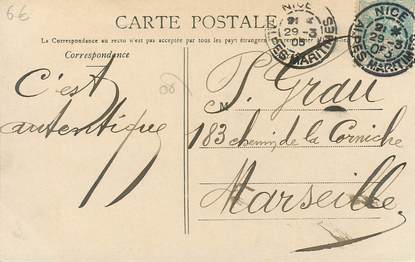 6€
CARTE POSTALE
La Correspondance au recto n'est pas acceptée par tous les pays étrangers
Correspondance
NICE
29 -3
05
ALPES MARITIMES
NICE
29 -3
05
ALPES MARITIMES
C'est
autentique
P. Grau
CM
183 chemin de la Corniche
Marseille